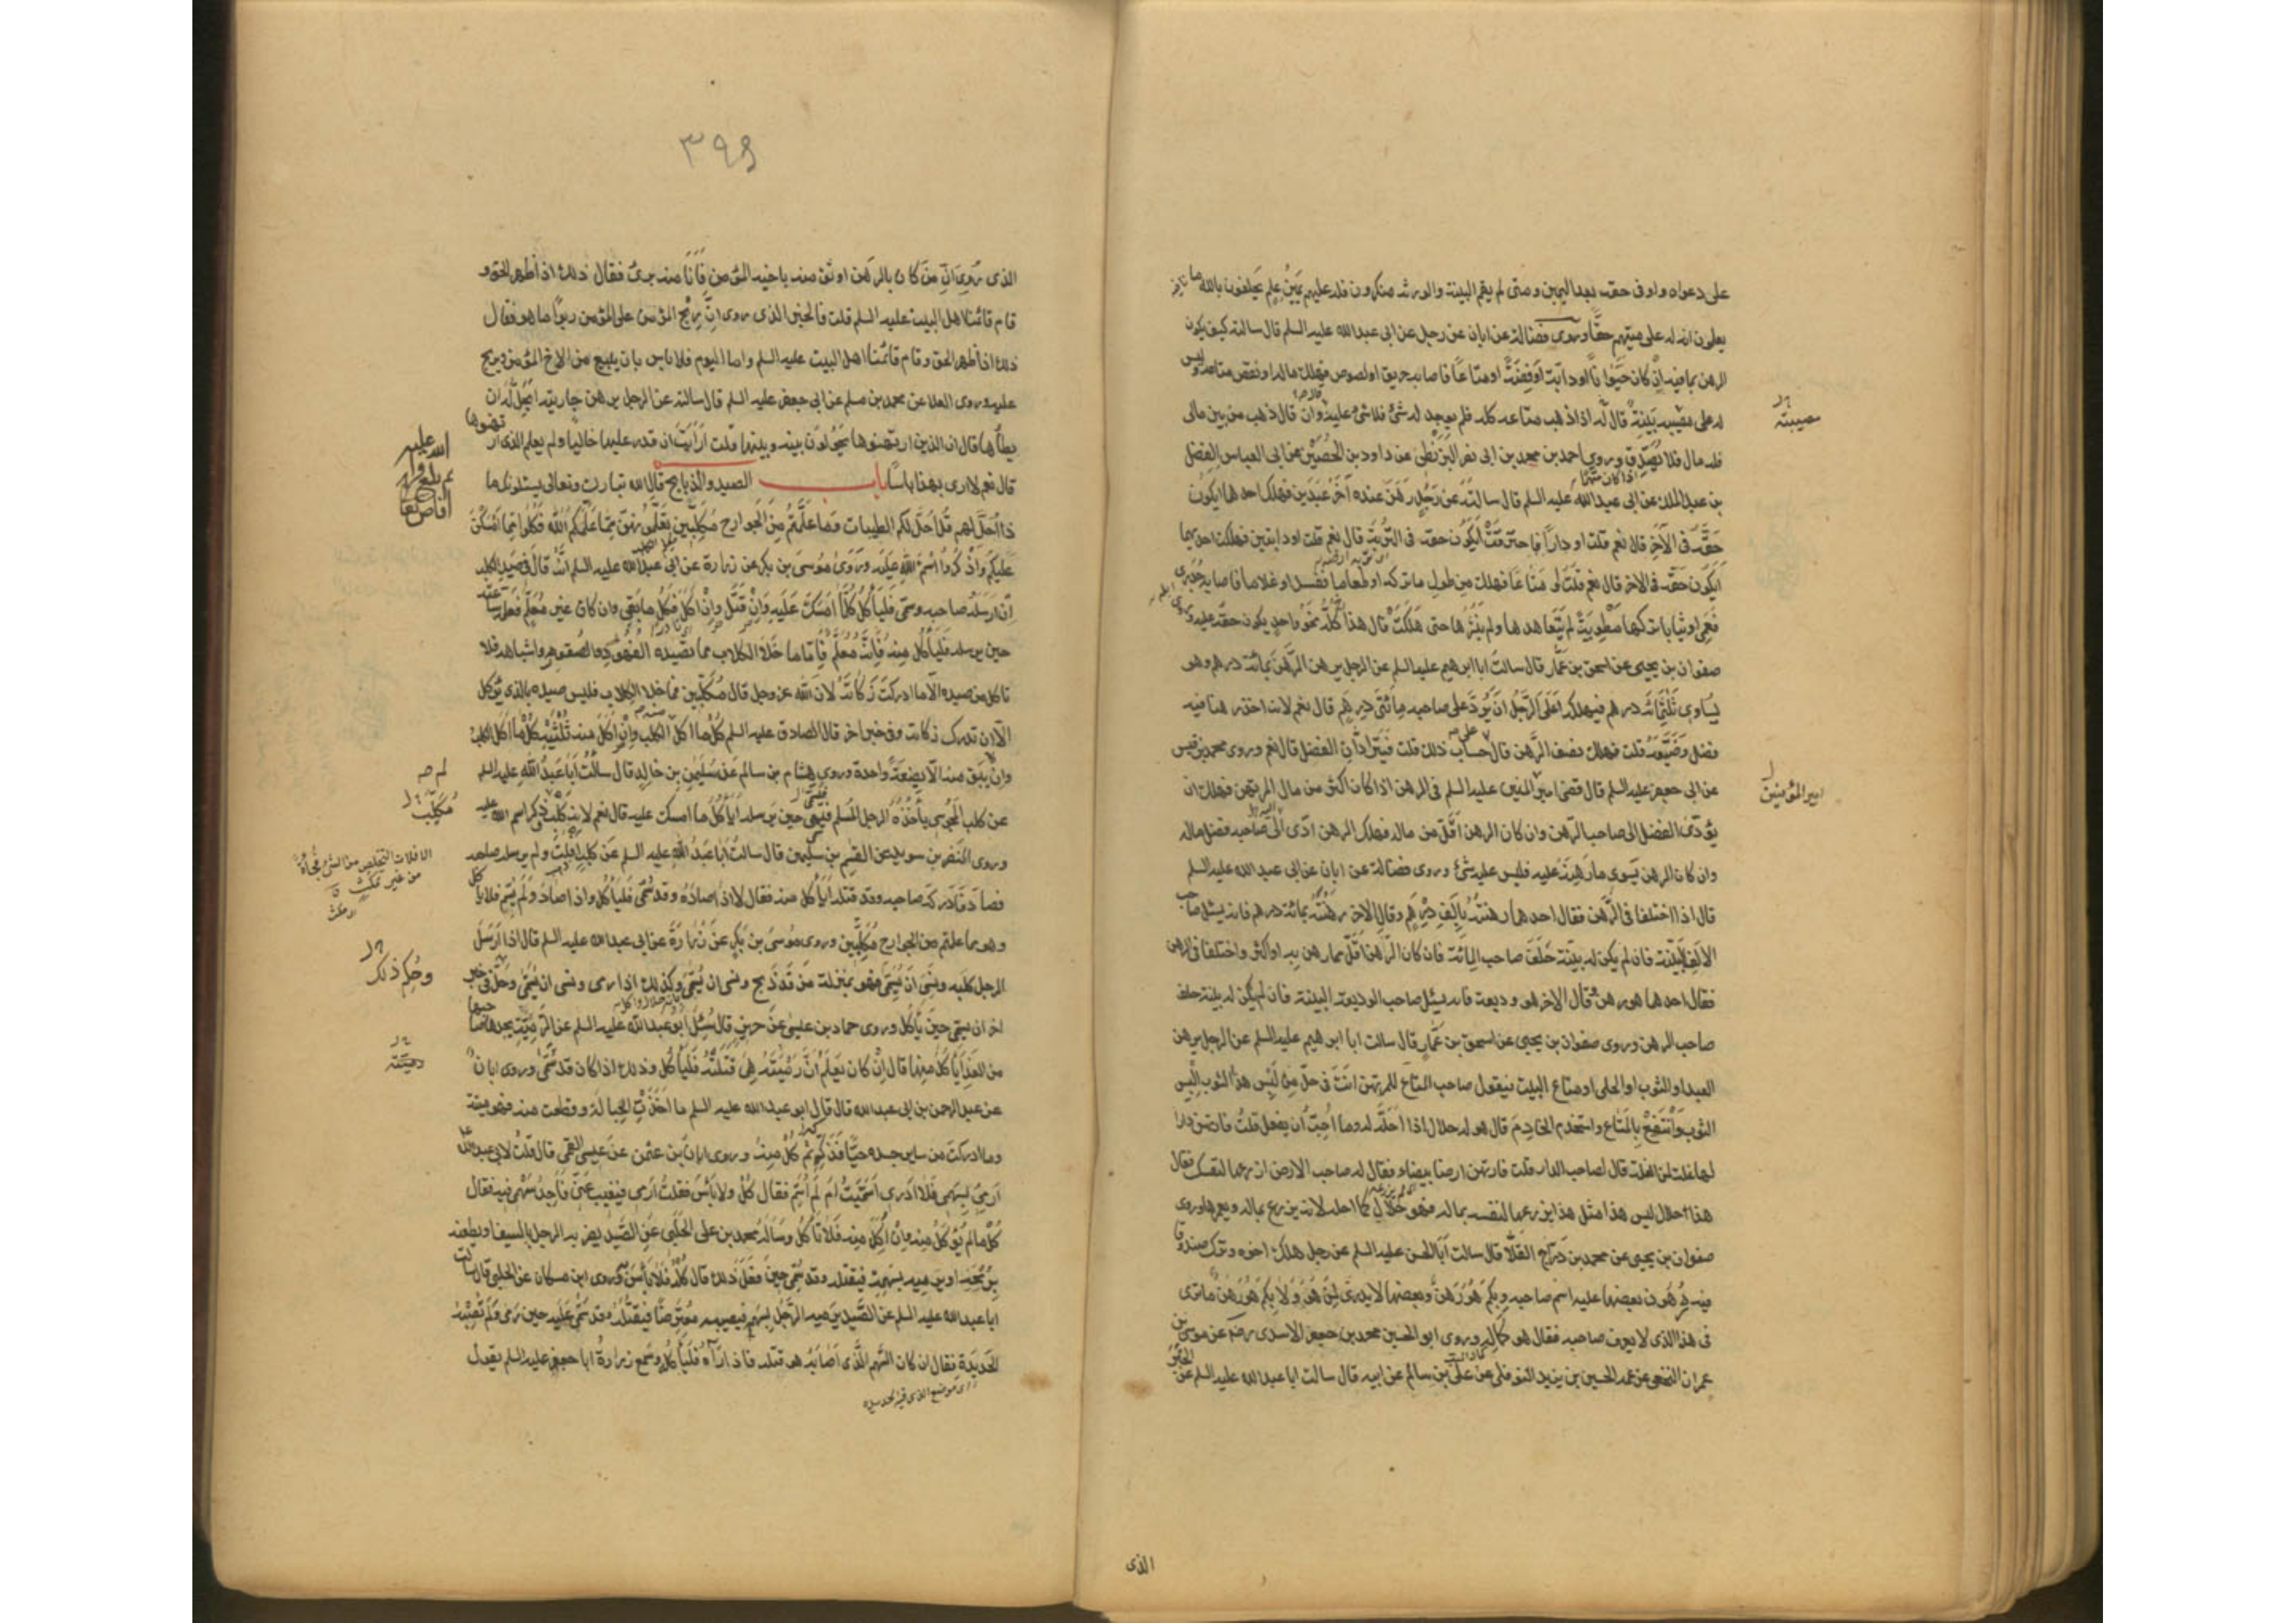 على دعواه واوفى حقه بعد اليمين ومتى لم يقم البينة والورثة منكرون فله عليهم يمين علم يحلفون بالله ما
يعلمون ان له على ميتهم حقا وروى فضالة عن ابان عن رجل عن ابى عبدالله عليه السلم قال سالته كيف يكون
الرهن بما فيه ان كان حيوانا او دابة او فضة او متاعا فاصابه حريق او لصوص فهلك ماله او نقص متاعه وليس
له على مصيبته بينة قال اذا ذهب متاعه كله فلم يوجد له شئ فلا شئ عليه وان قال ذهب من بين مالى
فله مال فلا يصدق وروى احمد بن محمد بن ابى نصر البزنطى عن داود بن الحصين عن ابى العباس الفضل
بن عبد الملك عن ابى عبدالله عليه السلم قال سالته عن رجل رهن عنده آخر عبدين فهلك احدهما ايكون
حقه فى الآخر قال نعم قلت او دارا فاحترقت ايكون حقه فى التربة قال نعم قلت او دابتين فهلكت احديهما
ايكون حقه فى الاخر قال نعم قلت او متاعا فهلك من طول ما تركه او طعاما ففسد او غلاما فاصابه جدرى
فعمى او ثيابا تركها مطوية لم يتعاهدها ولم ينشرها حتى هلكت قال هذا كله نحو واحد يكون حقه عليه وروى
صفوان بن يحيى عن اسحق بن عمار قال سالت ابا ابرهيم عليه السلم عن الرجل يرهن الرهن بمائة درهم وهو
يساوى ثلثمائة درهم فيهلك اعلى الرجل ان يرد على صاحبه مائتى درهم قال نعم لانه اخذ رهنا فيه
فضل وضيعه قلت فهلك نصف الرهن قال على حساب ذلك قلت فيترادان الفضل قال نعم وروى محمد بن قيس
عن ابى جعفر عليه السلم قال قضى امير المؤمنين عليه السلم فى الرهن اذا كان اكثر من مال المرتهن فهلك ان
يؤدى الفضل الى صاحب الرهن وان كان الرهن اقل من ماله فهلك الرهن ادى الى صاحبه فضل ماله
وان كان الرهن يسوى ما رهنه عليه فليس عليه شئ وروى فضالة عن ابان عن ابى عبد الله عليه السلم
قال اذا اختلفا فى الرهن فقال احدهما رهنته بالف درهم وقال الاخر رهنته بمائة درهم فانه يسئل صاحب
الالف البينة فان لم يكن له بينة حلف صاحب المائة فان كان الرهن اقل مما رهن به او اكثر واختلفا فى الرهن
فقال احدهما هو رهن وقال الاخر هو وديعة فانه يسئل صاحب الوديعة البينة فان لم يكن له بينة حلف
صاحب الرهن وروى صفوان بن يحيى عن اسحق بن عمار قال سالت ابا ابرهيم عليه السلم عن الرجل يرهن
العبد او الثوب او الحلى او متاع البيت فيقول صاحب المتاع للمرتهن انت فى حل من لبس هذا الثوب البس
الثوب وانتفع بالمتاع واستخدم الخادم قال هو له حلال اذا احله له وما احب ان يفعل قلت فارتهن دارا
لها غلة لمن الغلة قال لصاحب الدار قلت فارتهن ارضا بيضاء فقال له صاحب الارض ازرعها لنفسك فقال
هذا حلال ليس هذا مثل هذا يزرعها لنفسه بماله فهو له حلال كما احله لانه يزرع بماله ويعمرها وروى
صفوان بن يحيى عن محمد بن رباح القلا قال سالت ابا الحسن عليه السلم عن رجل هلك اخوه وترك صندوقا
فيه رهون بعضها عليه اسم صاحبه وبكم هو رهن وبعضها لا يدرى لمن هو ولا بكم هو رهن ما ترى
فى هذا الذى لا يعرف صاحبه فقال هو كماله وروى ابو الحسين محمد بن جعفر الاسدى رضه عن موسى بن
عمران النخعى عن عمه الحسين بن يزيد النوفلى عن على بن سالم عن ابيه قال سالت ابا عبد الله عليه السلم عن الخبر
مصيبته
امير المؤمنين
الذى
٣٩٩
الذى روى ان من كان بالرهن اوثق منه باخيه المؤمن فانا منه برئ فقال ذلك اذا ظهر الحق و
قام قائمنا اهل البيت عليه السلم قلت فالخبر الذى روى ان ربح المؤمن على المؤمن ربا ما هو فقال
ذلك اذا ظهر الحق وقام قائمنا اهل البيت عليه السلم واما اليوم فلا باس بان يبيع من الاخ المؤمن ويربح
عليه وروى العلا عن محمد بن مسلم عن ابى جعفر عليه السلم قال سالته عن الرجل يرهن جاريته ايحل له ان
يطأها قال ان الذين ارتهنوها يحولون بينه وبينها قلت ارايت ان قدر عليها خاليا ولم يعلم الذين ارتهنوها
قال نعم لا ارى بهذا باسا باب الصيد والذبايح قال الله تبارك وتعالى يسئلونك ما
ذا احل لهم قل احل لكم الطيبات وما علمتم من الجوارح مكلبين تعلمونهن مما علمكم الله فكلوا مما امسكن
عليكم واذكروا اسم الله عليه وروى موسى بن بكر عن زرارة عن ابى عبدالله عليه السلم انه قال فى صيد الكلب
ان ارسله صاحبه وسمى فلياكل كلما امسك عليه وان قتل وان اكل فكل ما بقى وان كان غير معلم فعلمه ساعته
حين يرسله فلياكل منه فانه معلم فاما ما خلا الكلاب مما تصيده الفهود والصقور واشباهه فلا
تاكل من صيده الا ما ادركت ذكاته لان الله عز وجل قال مكلبين فما خلا الكلاب فليس صيده بالذى يؤكل
الا ان تدرك ذكاته وفى خبر اخر قال الصادق عليه السلم كل ما اكل الكلب وان اكل منه ثلثيه كل ما اكل الكلب
وان لم يبق منه الا بضعة واحدة وروى هشام بن سالم عن سليمن بن خالد قال سالت ابا عبد الله عليه السلم
عن كلب المجوسى ياخذه الرجل المسلم فيسمى حين يرسله اياكل ما امسك عليه قال نعم لانه مكلب ذكر اسم الله عليه
وروى النضر بن سويد عن القسم بن سليمن قال سالت ابا عبد الله عليه السلم عن كلب افلت ولم يرسله صاحبه
فصاد فادركه صاحبه وقد قتله اياكل منه فقال لا اذا صاده وقد سمى فلياكل واذا صاد ولم يسم فلا ياكل
وهو مما علمتم من الجوارح مكلبين وروى موسى بن بكر عن زرارة عن ابى عبدالله عليه السلم قال اذا ارسل
الرجل كلبه ونسى ان يسمى فهو بمنزلة من قد ذبح ونسى ان يسمى وكذلك اذا رمى ونسى ان يسمى وحل فى خبر
اخر ان يسمى حين ياكل وروى حماد بن عيسى عن حريز قال سئل ابو عبدالله عليه السلم عن الرمية يجدها صاحبها
من الغد اياكل منها قال ان كان يعلم ان رميته هى قتلته فلياكل وذلك اذا كان قد سمى وروى ابان
عن عبد الرحمن بن ابى عبدالله قال قال ابو عبدالله عليه السلم ما اخذت الحبالة وقطعت منه فهو ميتة
وما ادركت من ساير جسده حيا فذكه ثم كل منه وروى ابان بن عثمن عن عيسى القمى قال قلت لابى عبدالله
ارمى بسهمى فلا ادرى اسميت ام لم اسم فقال كل ولا باس فقلت ارمى فيغيب عنى فاجد سهمى فيه فقال
كل ما لم يؤكل منه وان اكل منه فلا تاكل وساله محمد بن على الحلبى عن الصيد يضربه الرجل بالسيف او يطعنه
برمحه او يرميه بسهمه فيقتله وقد سمى حين فعل ذلك قال كله فلا باس به وروى ابن مسكان عن الحلبى قال سالت
ابا عبدالله عليه السلم عن الصيد يرميه الرجل بسهم فيصيبه معترضا فيقتله وقد سمى عليه حين رمى ولم تصبه
الحديدة فقال ان كان السهم الذى اصابه هو قتله فاذا رآه فلياكله وسمع زرارة ابا جعفر عليه السلم يقول
مكلب
الافلات التخلص من الشئ فجأة
من غير تمكث
وحكم ذلك
رميته